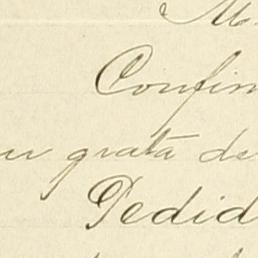 M
Confin
u grata de
Pedid